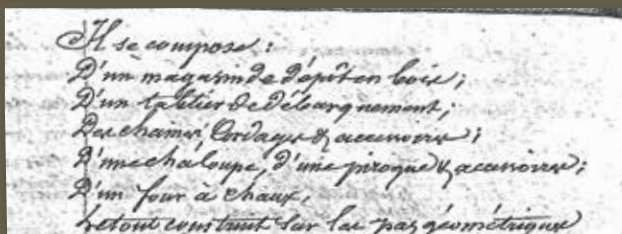 Il se compose :
D'un magasin de dépôt en bois ;
D'un tablier de débarquement ;
Des chaines, Cordages & accessoires ;
D'une chaloupe, d'une pirogue & accessoires ;
D'un four à chaux,
Le tout construit sur les pas géométriques